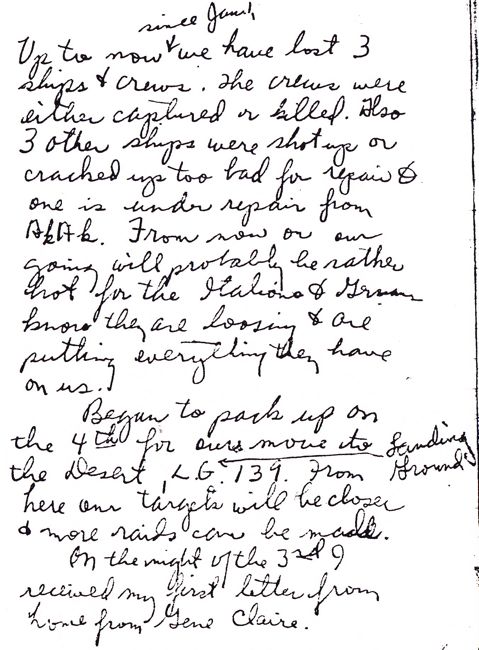 since Jan 1,
Up to now we have lost 3
ships & crews. The crews were
either captured or killed. Also
3 other ships were shot up or
cracked up too bad for repair &
one is under repair from
AkAk. From now on our
going will probably be rather
hot for the Italions & German
know they are loosing & are
putting everything they have
on us.
Began to pack up on
the 4th for ours move to Landing
the Desert, L.G. 139. From Ground
here our targets will be closer
& more raids can be made.
On the night of the 3rd I
received my first letter from
home from Gene Claire.